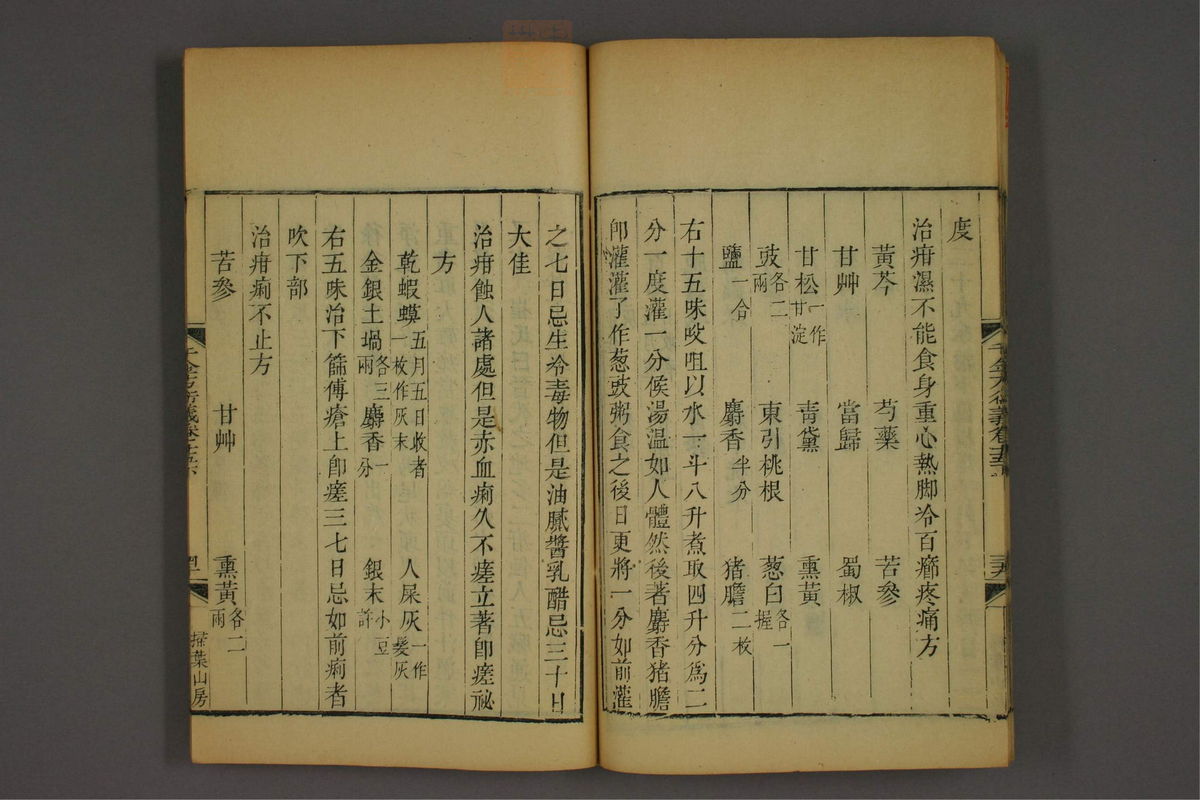 度
治疳濕不能食身重心熱脚冷百癤疼痛方
黃芩 芍藥 苦參
甘艸 當歸 蜀椒
甘松一作甘淀 青黛 熏黃
豉各二兩 東引桃根 葱白各一握
鹽一合 麝香半分 猪膽二枚
右十五味㕮咀以水一斗八升煮取四升分爲二
分一度灌一分候湯温如人體然後著麝香猪膽
卽灌灌了作葱豉粥食之後日更將一分如前灌
之七日忌生冷毒物但是油膩醬乳酷忌三十日
大佳
治疳蝕人諸處但是赤血痢久不瘥立著卽瘥祕
方
乾蝦蟆五月五日收者一枚作灰末 人屎灰一作髮灰
金銀土堝各三兩 麝香一分 銀末小豆許
右五味治下篩傅瘡上卽瘥三七日忌如前痢者
吹下部
治疳痢不止方
苦參 甘艸 熏黃各二兩
掃葉山房